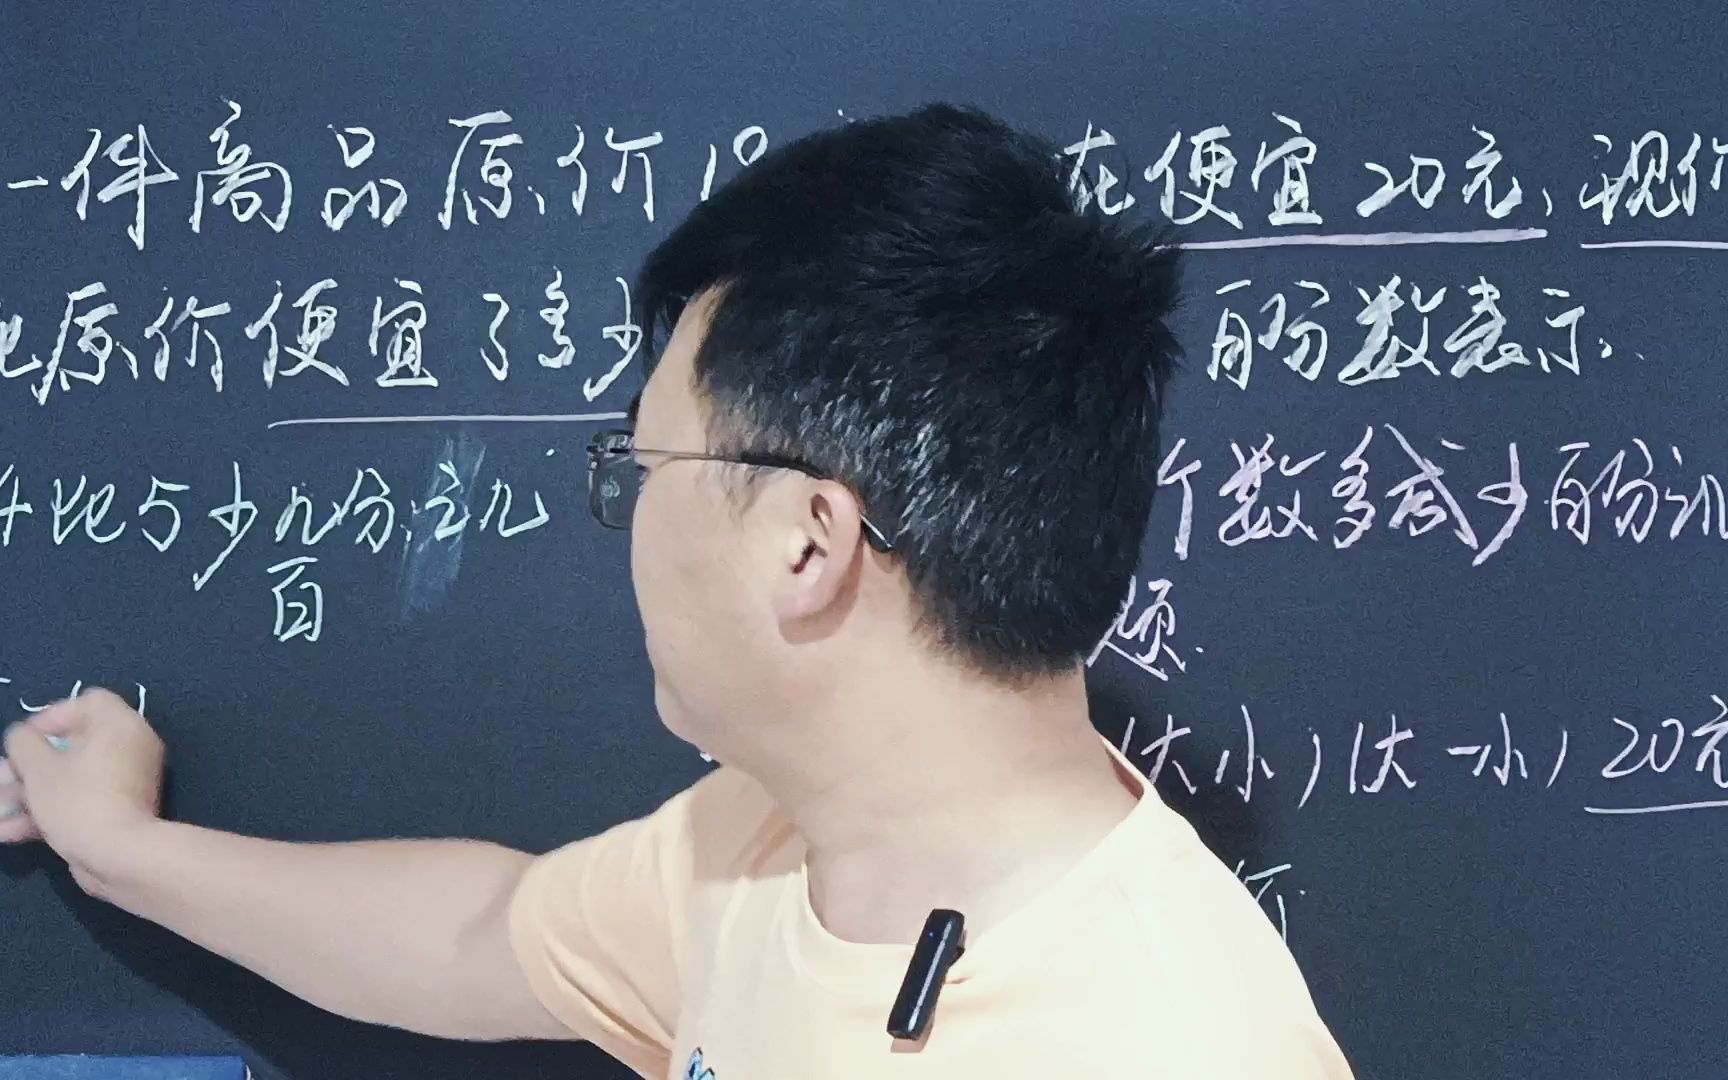 一件商品原价10 在便宜20元,现价
比原价便宜了多少 百分数表示.
比5少几分之几 个数多或少百分
百 题.
(大小)(大-小)20元
价